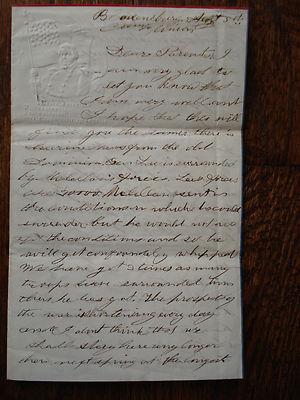 Sept 5th
Camp
Dear Parents, I
am very glad to
let you know that
I am very well and
I hope that this will
give you the same. there is
news from the old
Dominion. Gen Lee is surrounded
by McClellan's forces. Lee's force
McClellan sent in
the conditions in which he could
surrender but he would not accept
the conditions and so he
will get confoundedly whipped
We have got 2 times as many
troops have surrounded him
thus he has got. The prospect of
the war is brightening every day
and I dont think that we
shall stay here any longer
than next spring at the longest